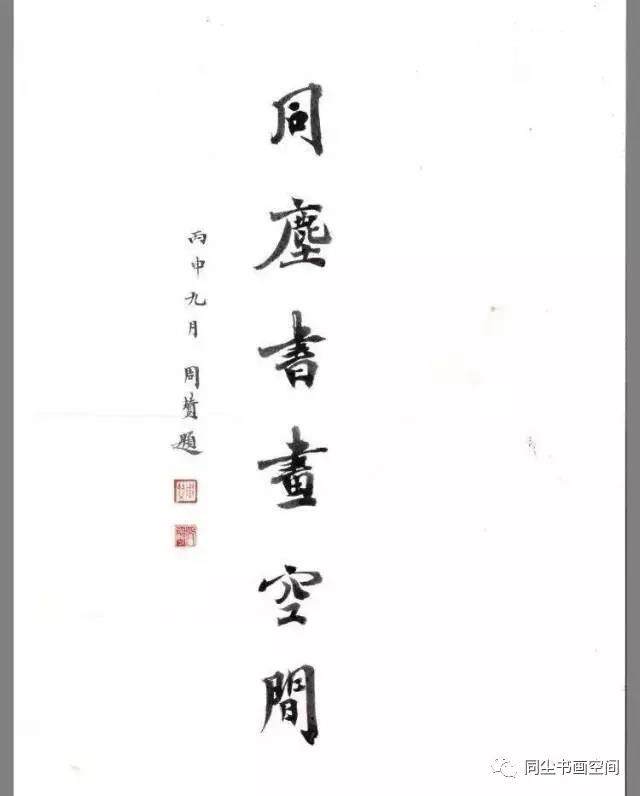 同塵書畫空間
丙申九月 周贇題
同尘书画空间